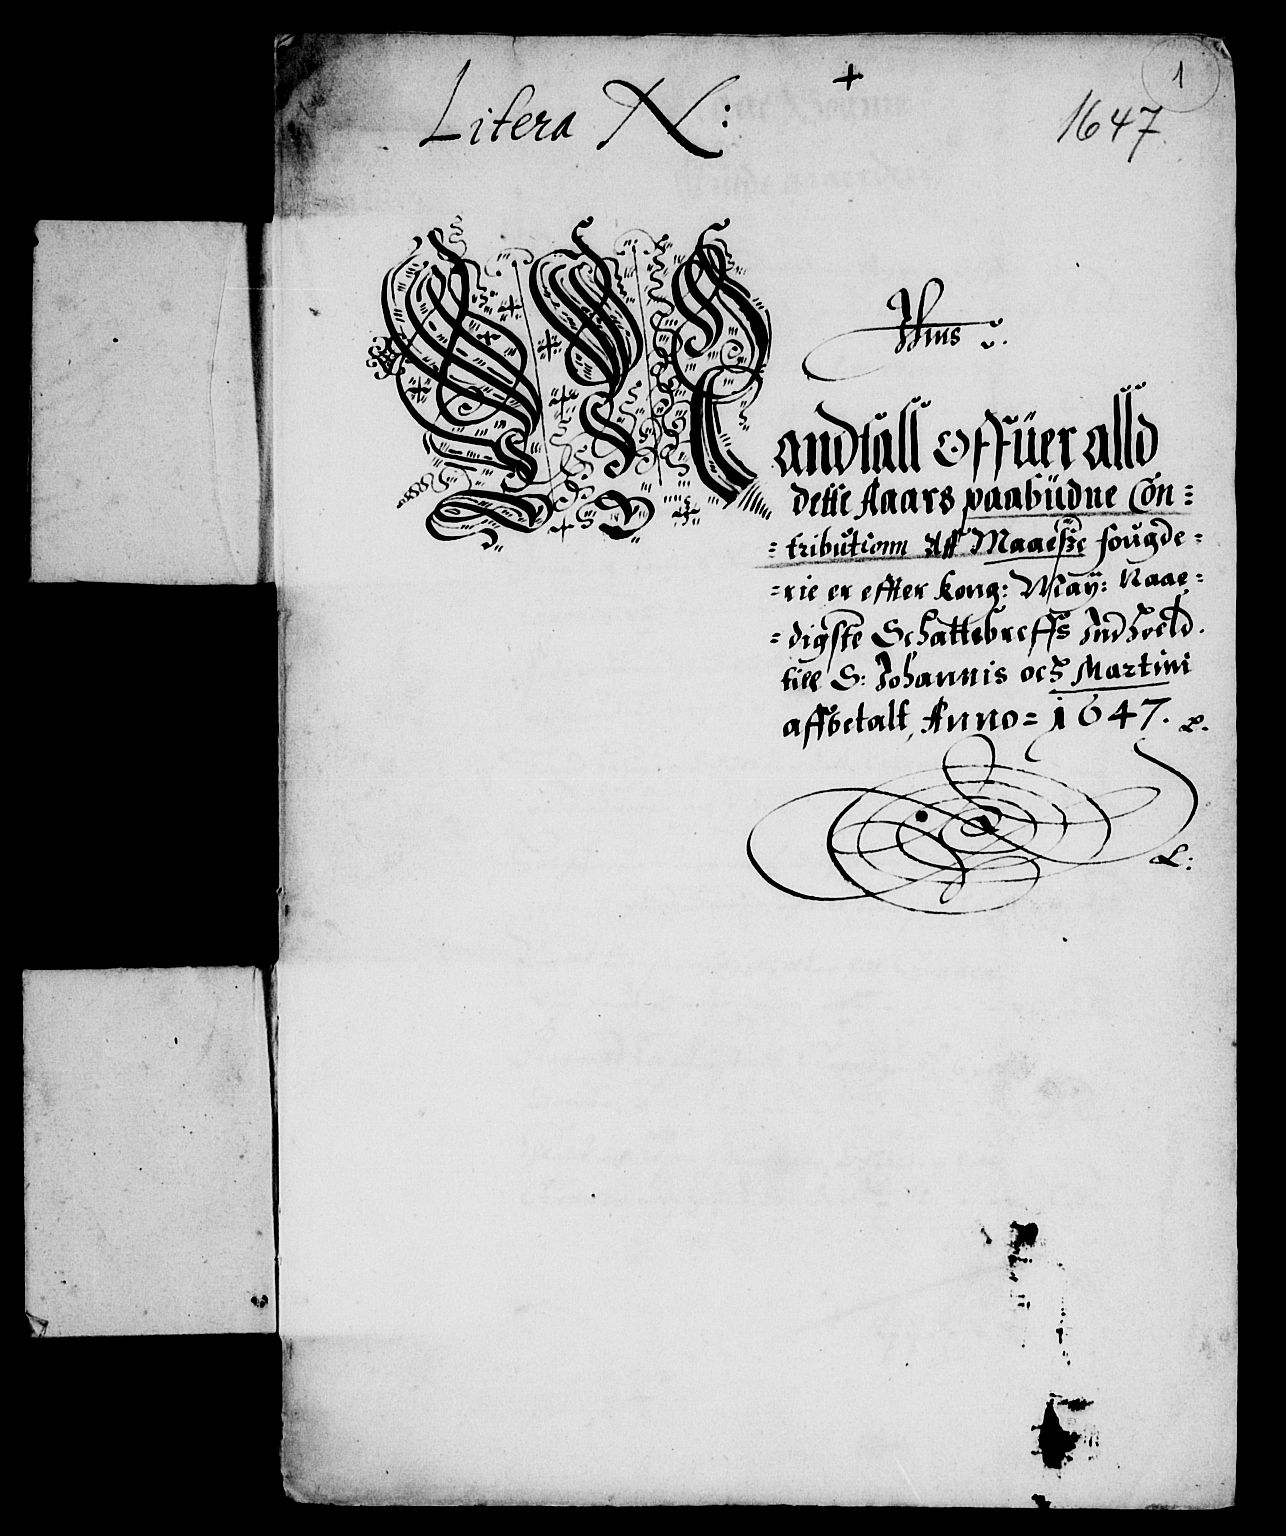 1
Litera N:
1647
Jhus
Mandtall Offüer alld
dette Aaars paabüdne Con=
=tributionn Aff Maaeße fougde=
=rie er effter kong: May: Naae=
=digste Schattebreffs Indhold.
till S: Johannis och Martini
affbetalt, Anno= 1647.